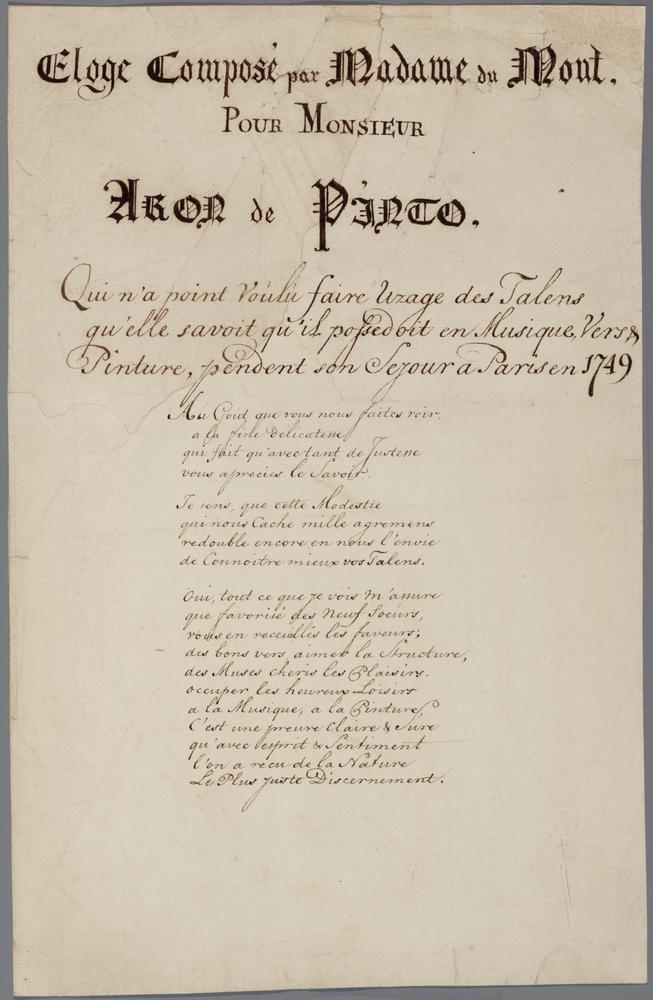 Eloge Composé par Madame du Mont.
POUR MONSIEUR
ARON de PINTO.
Qui n'a point Voulu faire Uzage des Talens
qu'elle savoit qu'il possedoit en Musique, Vers &
Pinture, pendent son Sejour a Paris en 1749
Au Goid que vous nous faites voir,
a la fine Delicatesse
qui fait qu'avec tant de Justesse
vous apreciés le Savoir.
Je sens, que cette Modestie
qui nous Cache mille agremens
redouble encore en nous l'envie
de Connoitre mieux vos Talens.
Oui, tout ce que je vois m'assure
que favorisé des Neuf Soeurs,
vous en recuillés les faveurs;
des bons vers aimer la Structure,
des Muses cheris les Plaisirs.
occuper les heureux Loisirs
a la Musique, a la Pinture,
C'est une preuve Claire & Sure
qu'avec esprit & Sentiment
l'on a recu de la Nature
Le Plus Juste Discernement.